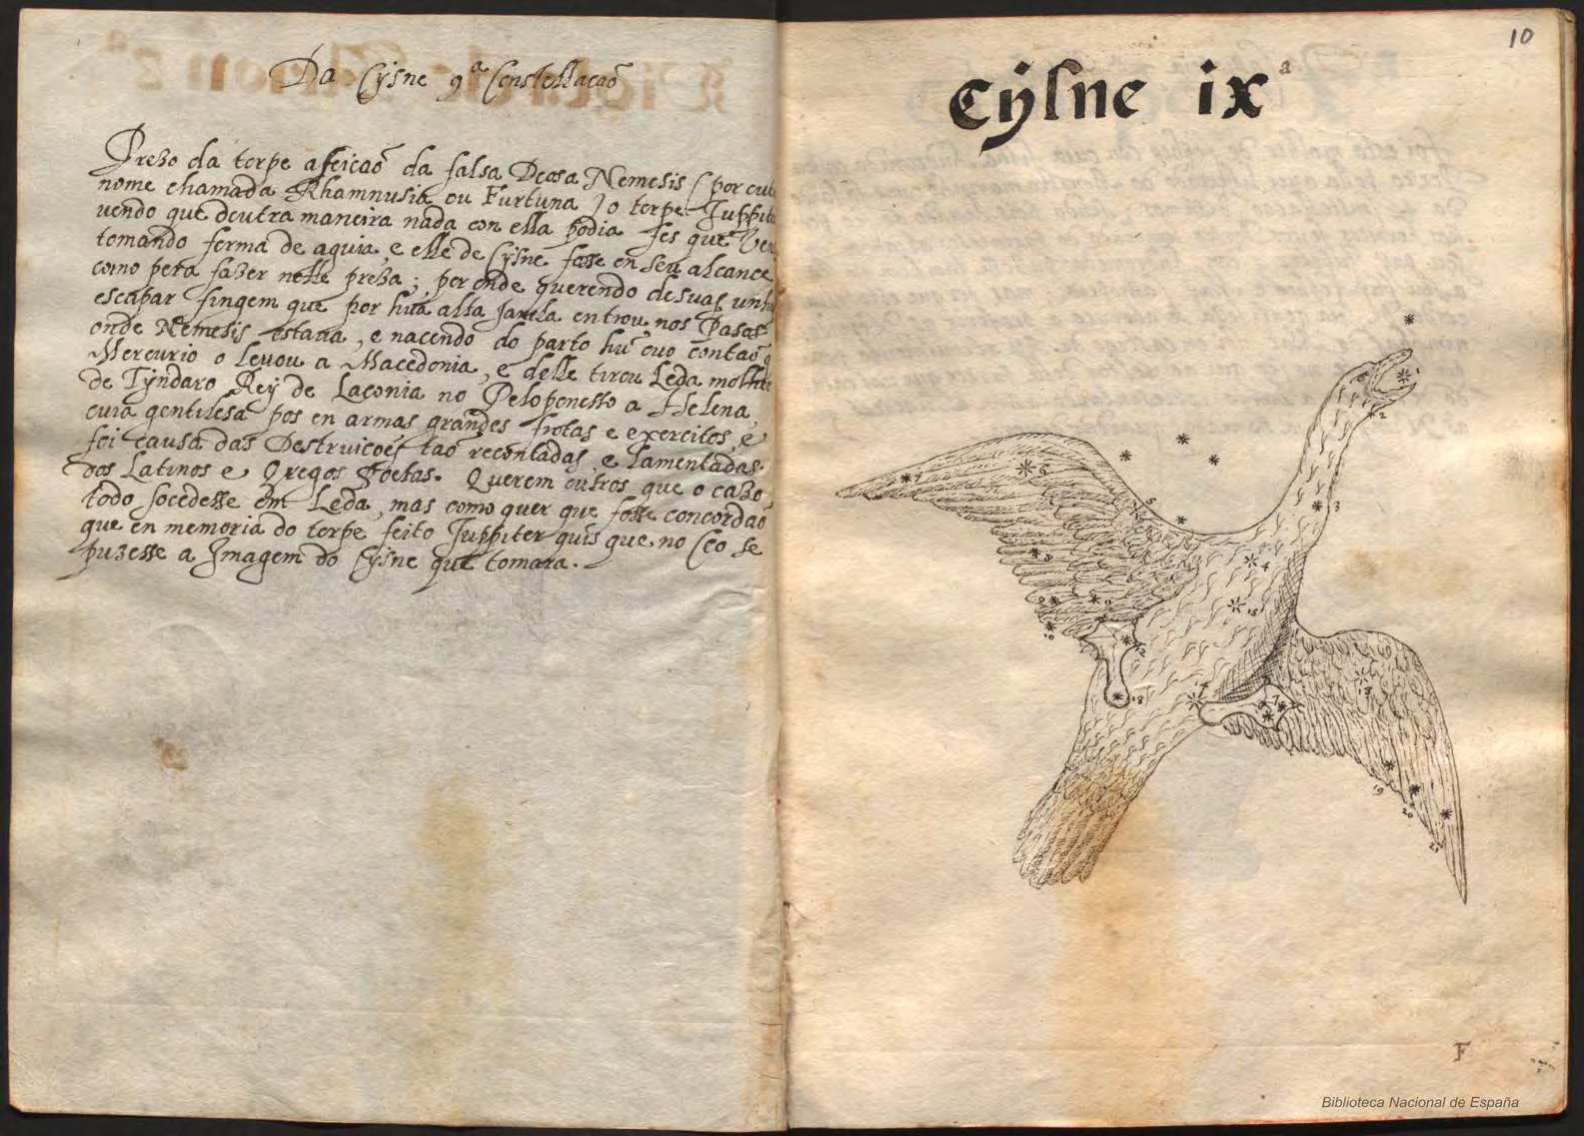 Da Cysne 9ª Constellaçaõ
Prezo da torpe afeiçaõ da falsa Deosa Nemesis ( por
nome chamada Rhamnusia ou Furtuna ) o torpe
vendo que doutra maneira nada con ella podia fes que
tomando forma de aguia, e elle de Cysne fosse en seu alcance
como pera fazer nelle preza; por onde querendo de suas
escapar fingem que por huã alta Janela entrou nos Pasos
onde Nemesis estaua, e nacendo do parto hũ ouo contaõ
Mercurio o leuou a Macedonia, e delle tirou Leda molher
de Tÿndaro Reÿ de Laconia no Peloponesso a Helena,
cuia gentilesa pos en armas grandes frotas e exercitos, e
foi causa das Destruiçoẽs taõ recontadas, e lamentadas
dos Latinos e Gregos Poetas. Querem outros que o cazo
todo socedesse em Leda, mas como quer que fosse concordaõ
que en memoria do torpe feito Juppiter quis que no Ceo se
puzesse a Imagem do Cysne que tomara.
10
Cÿsne ixª
1
2
3
4
5
6
7
8
9
10
12
15
17
18
19
20
21
F
Biblioteca Nacional de España